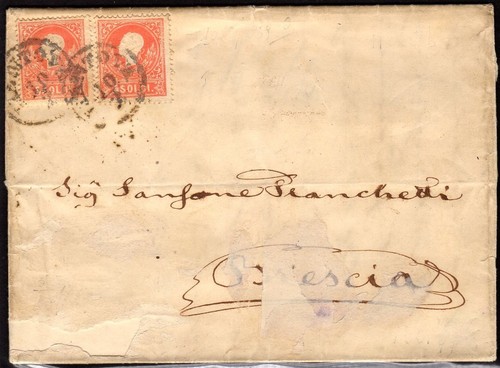 5 SOLDI
SOLDI
Sig. Sansone Franchetti
Brescia